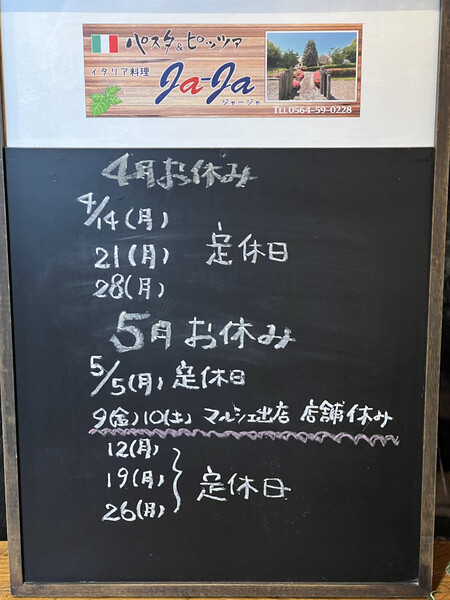 パスタ&ピッツァ
イタリア料理
Ja-Ja
ジャージャ
TEL0564-59-0228
4月お休み
4/14(月)
21(月) 定休日
28(月)
5月お休み
5/5(月) 定休日
9(金)10(土) マルシェ出店 店舗休み
12(月)
19(月) 定休日
26(月)